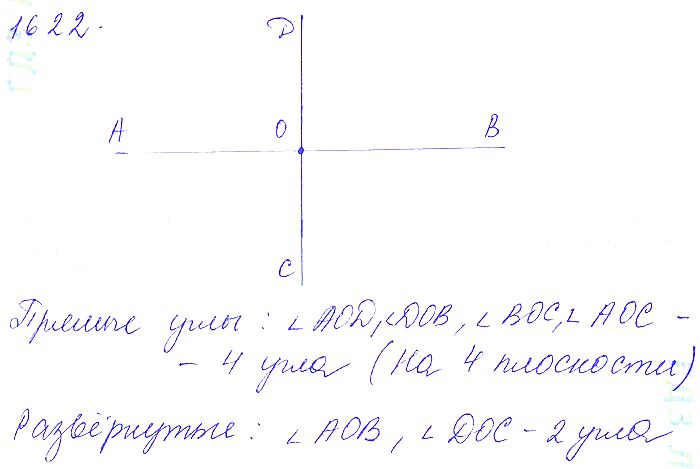 1622.
D
A O B
C
Прямые углы: ∠AOD, ∠DOB, ∠BOC, ∠AOC -
- 4 угла (На 4 плоскости)
Развёрнутые: ∠AOB, ∠DOC - 2 угла